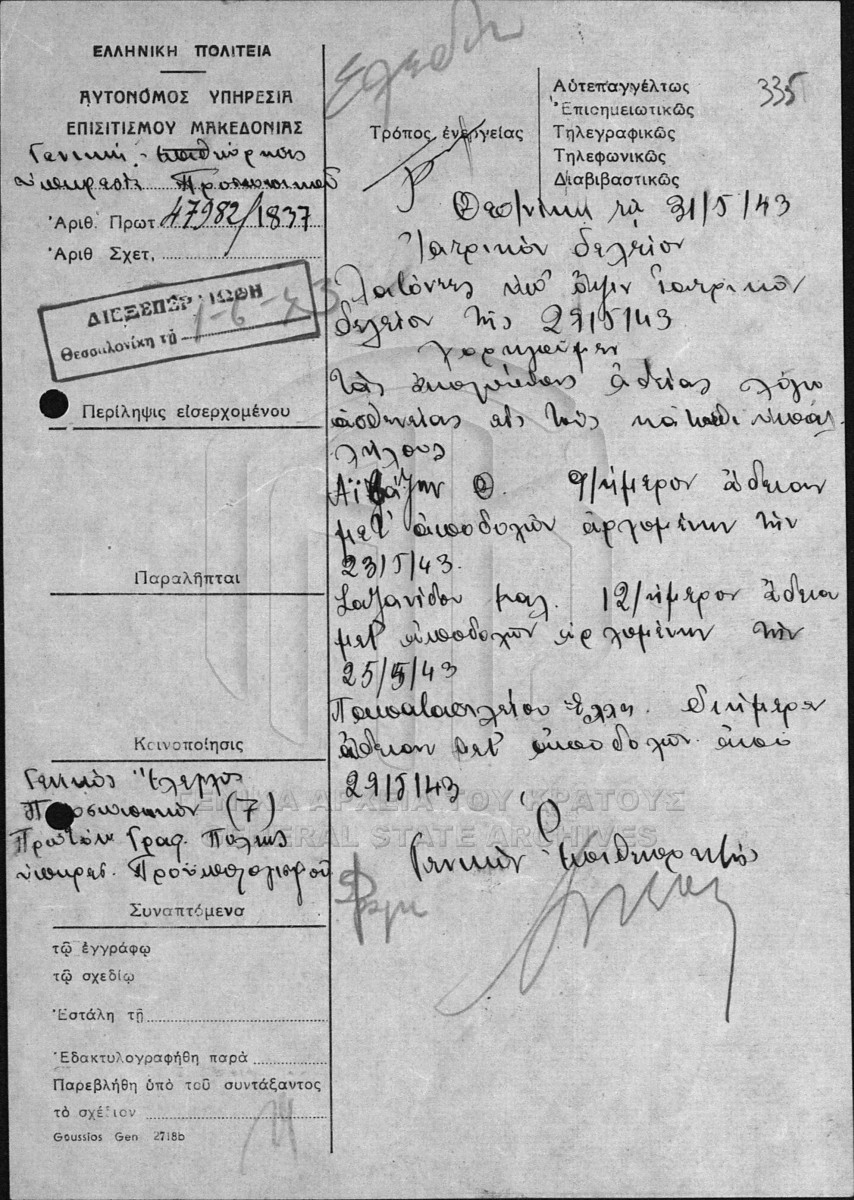 ΕΛΛΗΝΙΚΗ ΠΟΛΙΤΕΙΑ
ΑΥΤΟΝΟΜΟΣ ΥΠΗΡΕΣΙΑ
ΕΠΙΣΙΤΙΣΜΟΥ ΜΑΚΕΔΟΝΙΑΣ
Γενική
Προσωπικού
Ἀριθ. Πρωτ. 47982/1837
Ἀριθ Σχετ,
ΔΙΕΞΕΠΕΡΑΙΩΘΗ
Θεσσαλονίκη τῇ 1-6-43
Περίληψις εἰσερχομένου
Παραλῆπται
Κοινοποίησις
Γενικός Ἔλεγχος
Προσωπικόν (7)
Πρωτόκ. Γραφ. Πόλεως
ὑπηρεσ. Προϋπολογισμοῦ
Συναπτόμενα
τῷ ἐγγράφῳ
τῷ σχεδίῳ
Ἐστάλη τῇ
Ἐδακτυλογραφήθη παρὰ
Παρεβλήθη ὑπὸ τοῦ συντάξαντος
τὸ σχέδιον
Goussios Gen 2718b
335
Τρόπος ἐνεργείας
Αὐτεπαγγέλτως
Ἐπισημειωτικῶς
Τηλεγραφικῶς
Τηλεφωνικῶς
Διαβιβαστικῶς
Θεσ/νίκη τῇ 31/5/43
Ἰατρικὸν δελτίον
Λαβόντες ὑπ' ὄψιν ἰατρικὸν
δελτίον τῆς 29/5/43
χορηγοῦμεν
τὰς ἀκολούθους ἀδείας λόγῳ
ἀσθενείας εἰς τοὺς κάτωθι ὑπαλ-
λήλους
Θ. 9/ήμερον ἄδειαν
μετ' ἀποδοχῶν ἀρχομένην τὴν
23/5/43.
Σαζανίδου 12/ήμερον ἄδεια
μετ' ἀποδοχῶν ἀρχομένην τὴν
25/5/43
Παπαβασιλείου Ἑλλη. διήμερον
ἄδειαν μετ' ἀποδοχῶν ἀπὸ
29/5/43
Ὁ
Γενικὸς Ἐπιθεωρητής
ΓΕΝΙΚΑ ΑΡΧΕΙΑ ΤΟΥ ΚΡΑΤΟΥΣ
GENERAL STATE ARCHIVES